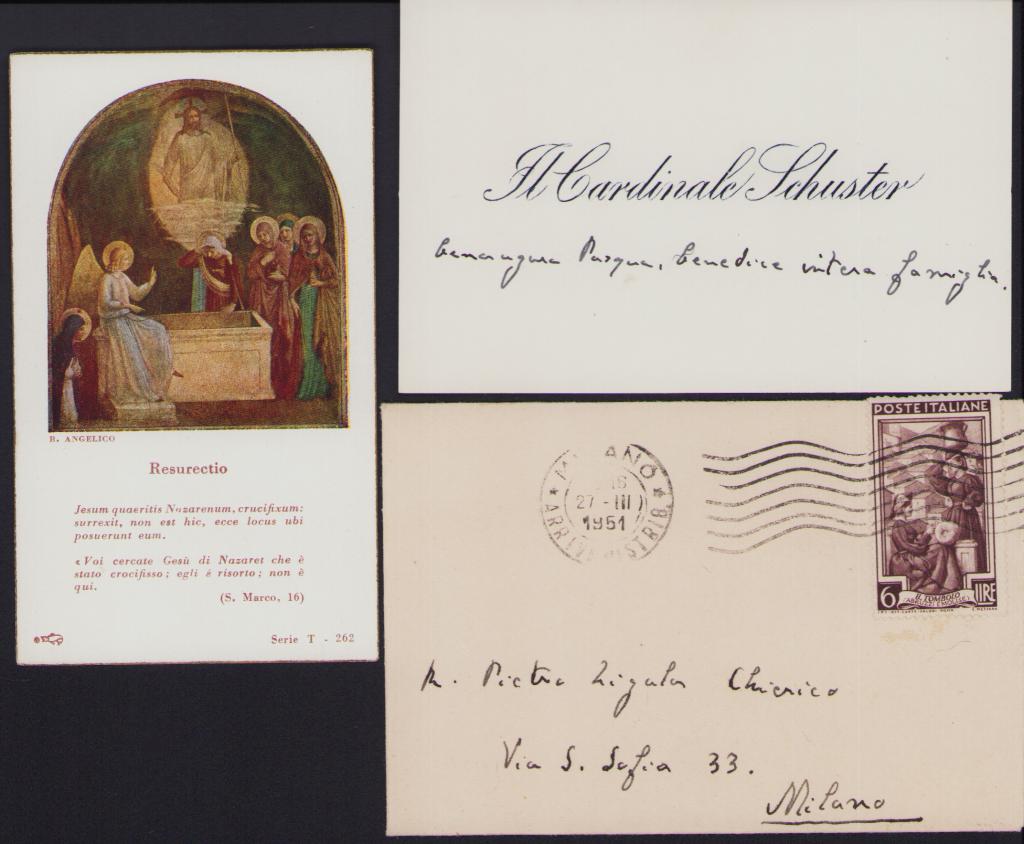 B. ANGELICO
Resurectio
Jesum quaeritis Nazarenum, crucifixum:
surrexit, non est hic, ecce locus ubi
posuerunt eum.
«Voi cercate Gesù di Nazaret che è
stato crocifisso; egli è risorto; non è
qui.
(S. Marco, 16)
Serie T - 262
Il Cardinale Schuster
benaugura Pasqua, benedice intera famiglia.
MILANO
16
27 - III
1951
ARRIVI DISTRIB.
POSTE ITALIANE
6 LIRE
IL TOMBOLO
(ABRUZZI E MOLISE)
R. Pietro Zigula Chierico
Via S. Sofia 33.
Milano